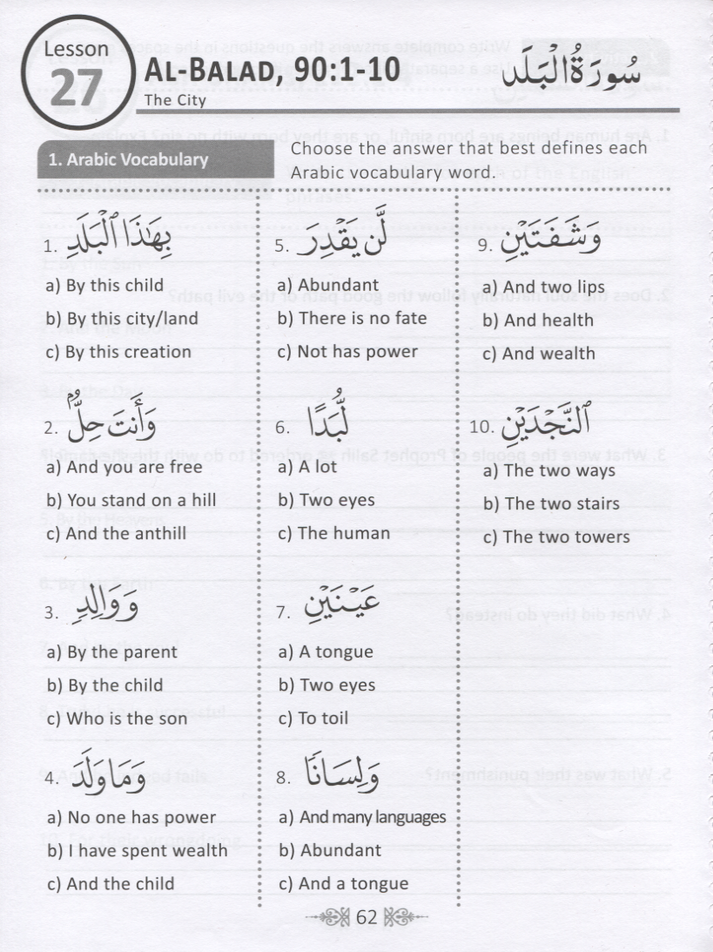 Lesson
27
AL-BALAD, 90:1-10
The City
سُورَةُ الْبَلَدِ
1. Arabic Vocabulary
Choose the answer that best defines each
Arabic vocabulary word.
1. بِهَٰذَا ٱلْبَلَدِ
a) By this child
b) By this city/land
c) By this creation
2. وَأَنتَ حِلٌّۢ
a) And you are free
b) You stand on a hill
c) And the anthill
3. وَوَالِدٍ
a) By the parent
b) By the child
c) Who is the son
4. وَمَا وَلَدَ
a) No one has power
b) I have spent wealth
c) And the child
5. لَّن يَقْدِرَ
a) Abundant
b) There is no fate
c) Not has power
6. لُّبَدًا
a) A lot
b) Two eyes
c) The human
7. عَيْنَيْنِ
a) A tongue
b) Two eyes
c) To toil
8. وَلِسَانًا
a) And many languages
b) Abundant
c) And a tongue
9. وَشَفَتَيْنِ
a) And two lips
b) And health
c) And wealth
10. ٱلنَّجْدَيْنِ
a) The two ways
b) The two stairs
c) The two towers
62